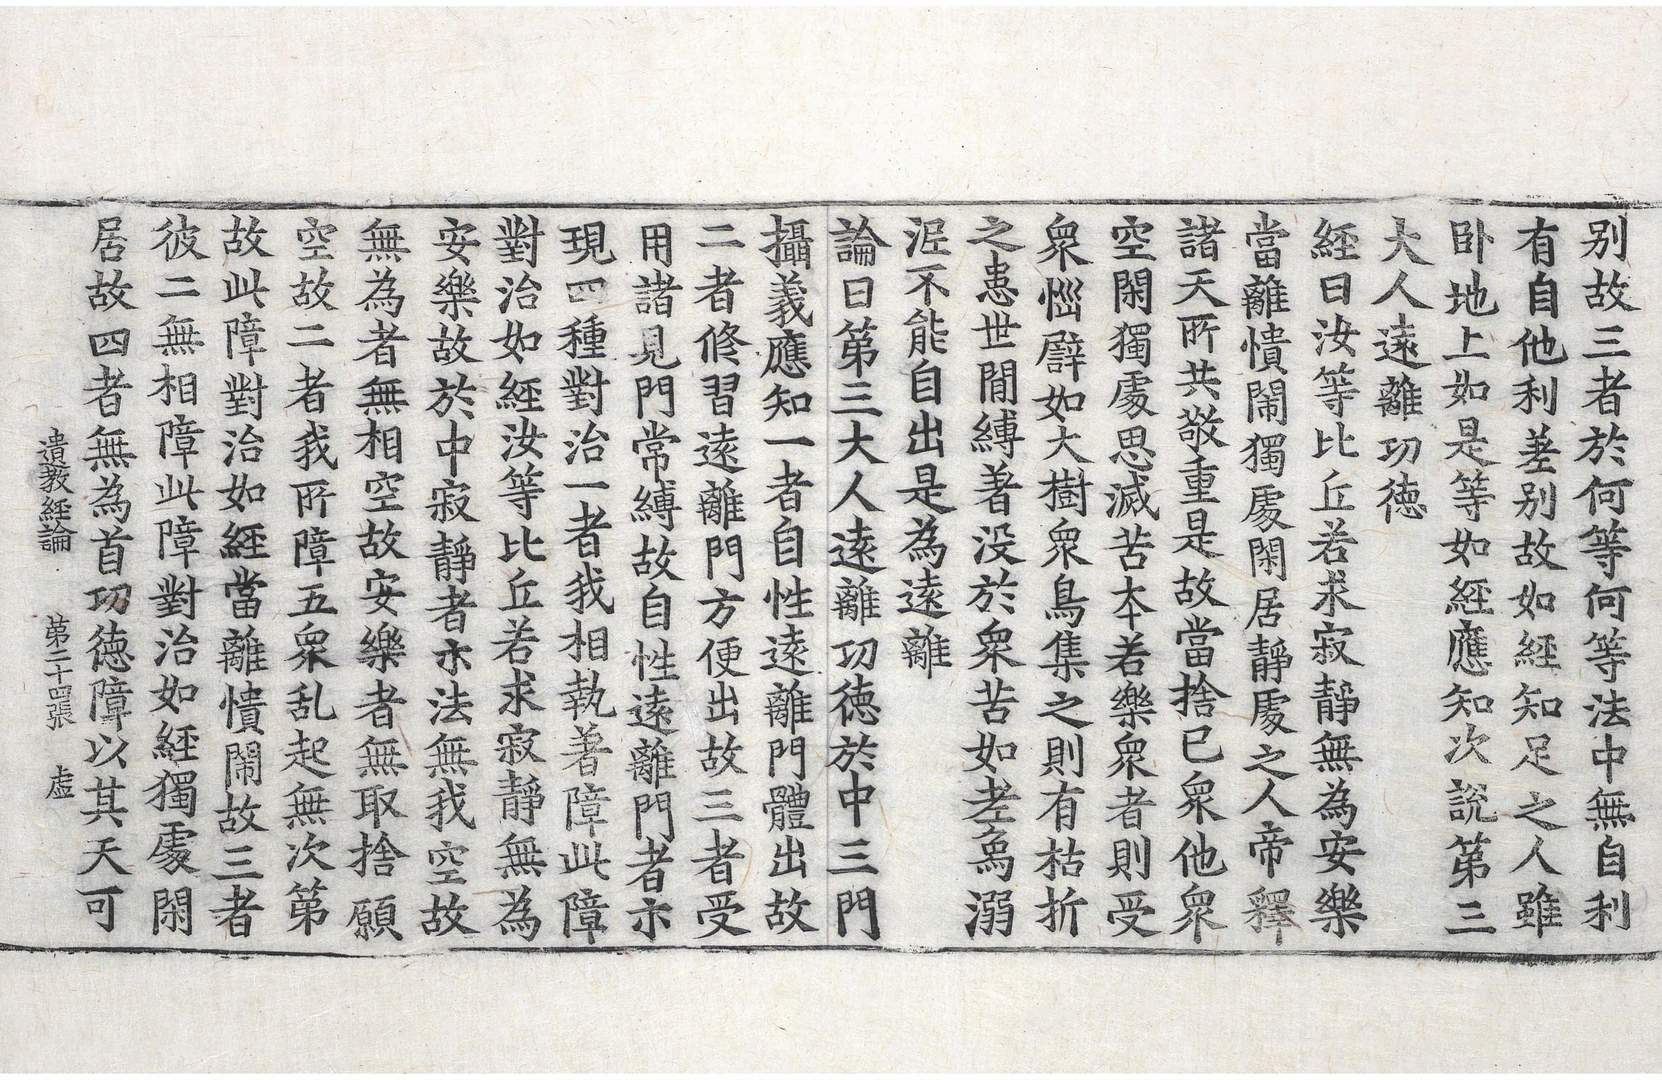 别故三者於何等何等法中無自利
有自他利差别故如經知足之人雖
卧地上如是等如經應知次說第三
大人遠離功徳
經曰汝等比丘若求寂靜無為安樂
當離憒閙獨處閑居靜處之人帝釋
諸天所共敬重是故當捨已衆他衆
空閑獨處思滅苦本若樂衆者則受
衆惱譬如大樹衆鳥集之則有枯折
之患世間縛著没於衆苦如老烏溺
泥不能自出是為遠離
論曰第三大人遠離功徳於中三門
攝義應知一者自性遠離門體出故
二者修習遠離門方便出故三者受
用諸見門常縛故自性遠離門者示
現四種對治一者我相執著障此障
對治如經汝等比丘若求寂靜無為
安樂故於中寂靜者示法無我空故
無為者無相空故安樂者無取捨願
空故二者我所障五衆乱起無次第
故此障對治如經當離憒閙故三者
彼二無相障此障對治如經獨處閑
居故四者無為首功徳障以其天可
遺教經論 第二十四張 虛